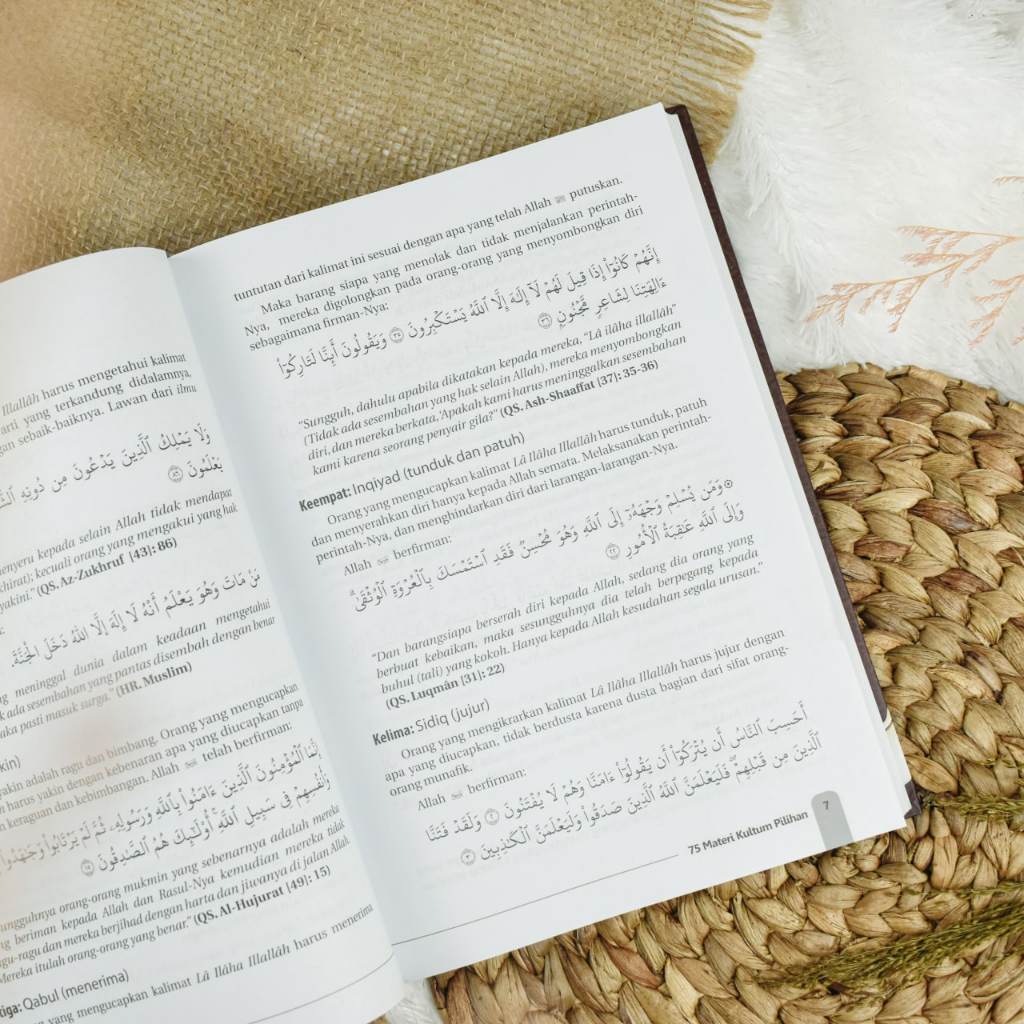 Illallâh harus mengetahui kalimat
arti yang terkandung didalamnya,
sebaik-baiknya. Lawan dari ilmu
وَلَا يَمْلِكُ ٱلَّذِينَ يَدْعُونَ مِن دُونِهِ
يَعْلَمُونَ ٨٦
selain Allah tidak mendapat
kecuali orang yang mengakui yang hak
(QS. Az-Zukhruf [43]: 86)
مَنْ مَاتَ وَهُوَ يَعْلَمُ أَنَّهُ لَا إِلَهَ إِلَّا اللَّهُ دَخَلَ الْجَنَّةَ.
meninggal dunia dalam keadaan mengetahui
ada sesembahan yang pantas disembah dengan benar
pasti masuk surga." (HR. Muslim)
adalah ragu dan bimbang. Orang yang mengucapkan
harus yakin dengan kebenaran apa yang diucapkan tanpa
keraguan dan kebimbangan. Allah ﷻ telah berfirman:
إِنَّمَا ٱلْمُؤْمِنُونَ ٱلَّذِينَ ءَامَنُوا۟ بِٱللَّهِ وَرَسُولِهِۦ ثُمَّ لَمْ يَرْتَابُوا۟ وَجَٰهَدُوا۟
وَأَنفُسِهِمْ فِى سَبِيلِ ٱللَّهِ أُو۟لَٰٓئِكَ هُمُ ٱلصَّٰدِقُونَ ١٥
orang-orang mukmin yang sebenarnya adalah mereka
beriman kepada Allah dan Rasul-Nya kemudian mereka tidak
dan mereka berjihad dengan harta dan jiwanya di jalan Allah
Mereka itulah orang-orang yang benar." (QS. Al-Hujurat [49]: 15)
Qabul (menerima)
yang mengucapkan kalimat Lâ Ilâha Illallâh harus menerima
tuntutan dari kalimat ini sesuai dengan apa yang telah Allah ﷻ putuskan.
Maka barang siapa yang menolak dan tidak menjalankan perintah-
Nya, mereka digolongkan pada orang-orang yang menyombongkan diri
sebagaimana firman-Nya:
إِنَّهُمْ كَانُوٓا۟ إِذَا قِيلَ لَهُمْ لَآ إِلَٰهَ إِلَّا ٱللَّهُ يَسْتَكْبِرُونَ ٣٥ وَيَقُولُونَ أَئِنَّا لَتَارِكُوٓا۟
ءَالِهَتِنَا لِشَاعِرٍ مَّجْنُونٍۭ ٣٦
"Sungguh, dahulu apabila dikatakan kepada mereka, "Lâ ilâha illallâh"
(Tidak ada sesembahan yang hak selain Allah), mereka menyombongkan
diri, dan mereka berkata,'Apakah kami harus meninggalkan sesembahan
kami karena seorang penyair gila?" (QS. Ash-Shaaffat [37]: 35-36)
Keempat: Inqiyad (tunduk dan patuh)
Orang yang mengucapkan kalimat Lâ Ilâha Illallâh harus tunduk, patuh
dan menyerahkan diri hanya kepada Allah semata. Melaksanakan perintah-
perintah-Nya, dan menghindarkan diri dari larangan-larangan-Nya.
Allah ﷻ berfirman:
۞ وَمَن يُسْلِمْ وَجْهَهُۥٓ إِلَى ٱللَّهِ وَهُوَ مُحْسِنٌ فَقَدِ ٱسْتَمْسَكَ بِٱلْعُرْوَةِ ٱلْوُثْقَىٰ ۗ
وَإِلَى ٱللَّهِ عَٰقِبَةُ ٱلْأُمُورِ ٢٢
"Dan barangsiapa berserah diri kepada Allah, sedang dia orang yang
berbuat kebaikan, maka sesungguhnya dia telah berpegang kepada
buhul (tali) yang kokoh. Hanya kepada Allah kesudahan segala urusan."
(QS. Luqmân [31]: 22)
Kelima: Sidiq (jujur)
Orang yang mengikrarkan kalimat Lâ Ilâha Illallâh harus jujur dengan
apa yang diucapkan, tidak berdusta karena dusta bagian dari sifat orang-
orang munafik.
Allah ﷻ berfirman:
أَحَسِبَ ٱلنَّاسُ أَن يُتْرَكُوٓا۟ أَن يَقُولُوٓا۟ ءَامَنَّا وَهُمْ لَا يُفْتَنُونَ ٢ وَلَقَدْ فَتَنَّا
ٱلَّذِينَ مِن قَبْلِهِمْ ۖ فَلَيَعْلَمَنَّ ٱللَّهُ ٱلَّذِينَ صَدَقُوا۟ وَلَيَعْلَمَنَّ ٱلْكَٰذِبِينَ ٣
75 Materi Kultum Pilihan 7